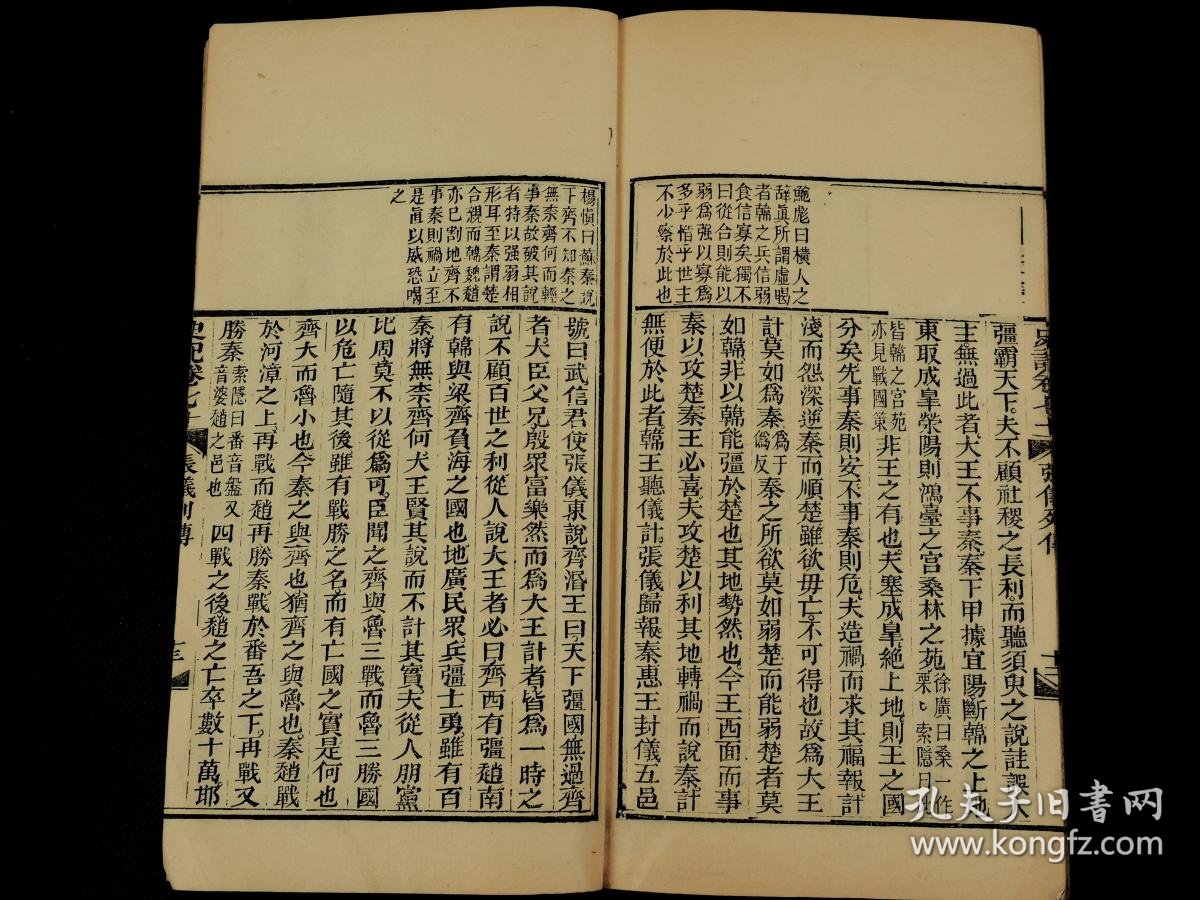 鮑彪曰橫人之
辭眞所謂虛喝
者韓之兵信弱
食信寡矣獨不
曰從合則能以
弱爲强以寡爲
多乎惜乎世主
不少察於此也
張儀列傳
彊霸天下夫不顧社稷之長利而聽須臾之說詿誤人
主無過此者大王不事秦秦下甲據宜陽斷韓之上地
東取成皐滎陽則鴻臺之宮桑林之苑徐廣曰桑一作栗索隱曰此
皆韓之宮苑亦見戰國策非王之有也夫塞成皐絕上地則王之國
分矣先事秦則安不事秦則危夫造禍而求其福報計
淺而怨深逆秦而順楚雖欲毋亡不可得也故爲大王
計莫如爲秦爲于僞反秦之所欲莫如弱楚而能弱楚者莫
如韓非以韓能彊於楚也其地勢然也今王西面而事
秦以攻楚秦王必喜夫攻楚以利其地轉禍而說秦計
無便於此者韓王聽儀計張儀歸報秦惠王封儀五邑
楊愼曰蘇秦說
下齊不知秦之
無柰齊何而輕
事秦故破其說
者特以强弱相
形耳至秦謂楚
合親而韓魏趙
亦已割地齊不
事秦則禍立至
是眞以威恐喝
之
號曰武信君使張儀東說齊湣王曰天下彊國無過齊
者大臣父兄殷眾富樂然而爲大王計者皆爲一時之
說不顧百世之利從人說大王者必曰齊西有彊趙南
有韓與梁齊負海之國也地廣民眾兵彊士勇雖有百
秦將無柰齊何大王賢其說而不計其實夫從人朋黨
比周莫不以從爲可臣聞之齊與魯三戰而魯三勝國
以危亡隨其後雖有戰勝之名而有亡國之實是何也
齊大而魯小也今秦之與齊也猶齊之與魯也秦趙戰
於河漳之上再戰而趙再勝秦戰於番吾之下再戰又
勝秦索隱曰番音盤又音婆趙之邑也四戰之後趙之亡卒數十萬邯
史記卷七十
張儀列傳
十三
孔夫子旧书网
www.kongfz.com